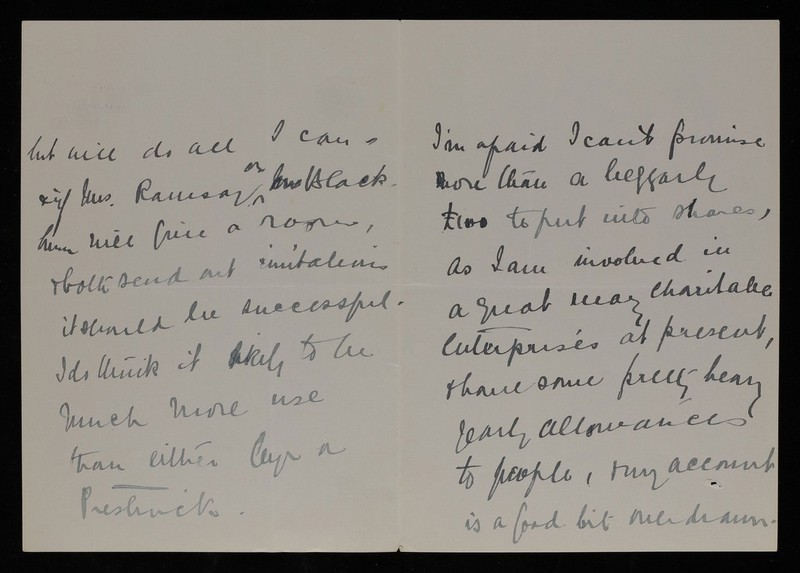 but will do all I can &
if Mrs. Ramsay or Mrs Black-
burn will give a room,
& both send out invitations
it should be successful.
I do think it likely to be
much more use
than either Ayr or
Prestwick.
I'm afraid I can't promise
more than a beggarly
£100 to put into shares,
as I am involved in
a great many charitable
enterprises at present,
& have some pretty heavy
yearly allowances
to people, & my account
is a good bit overdrawn.